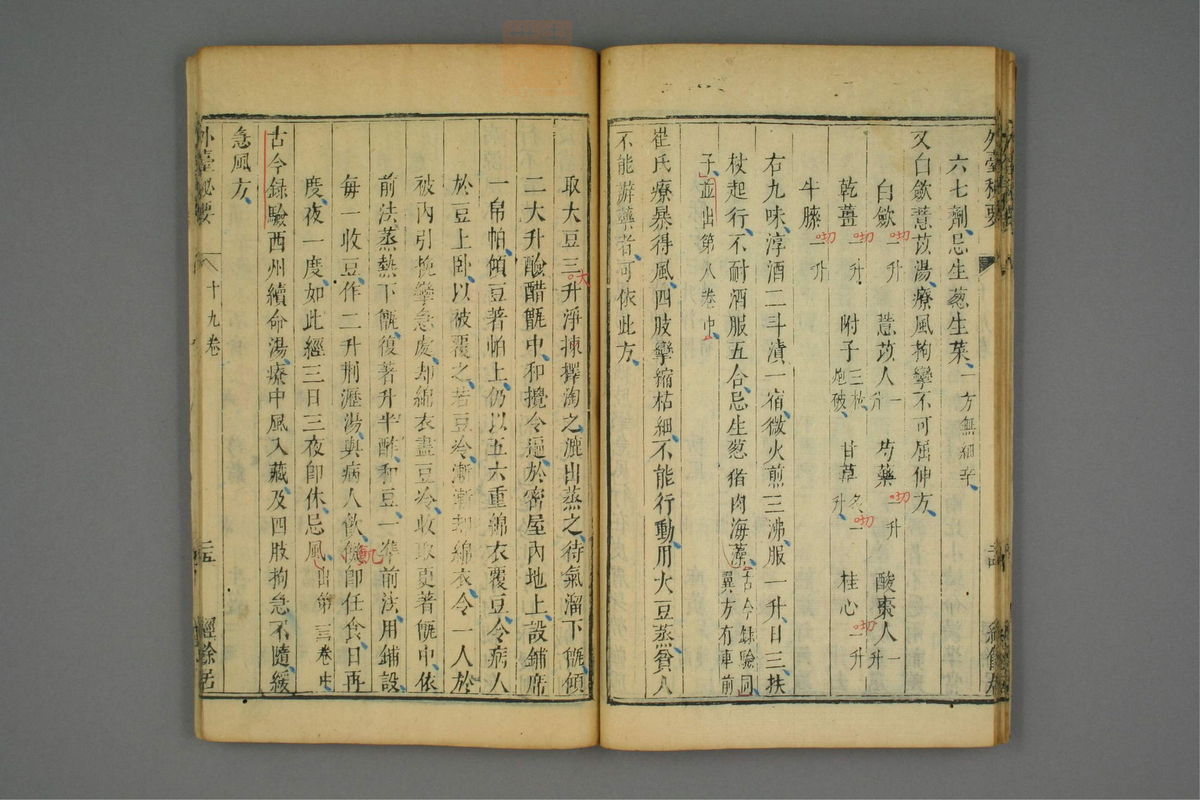 外臺秘要
六七劑忌生葱生菜一方無細辛
又白斂薏苡湯療風拘攣不可屈伸方
白斂一升 薏苡人一升 芍藥一升 酸棗人一升
乾薑一升 附子三枚炮破 甘草炙一升 桂心一升
牛膝一升
右九味淳酒二斗漬一宿微火煎三沸服一升日三扶
杖起行不耐酒服五合忌生葱猪肉海藻古今錄驗同翼方有車前
子並出第八卷中
崔氏療暴得風四肢攣縮枯細不能行動用大豆蒸貧人
不能辦藥者可依此方
取大豆三升淨揀擇淘之漉出蒸之待氣溜下甑傾
二大升釅醋甑中和攪令遍於密屋內地上設鋪席
一帛帕傾豆著帕上仍以五六重綿衣覆豆令病人
於豆上卧以被覆之若豆冷漸漸却綿衣令一人於
被內引挽攣急處却綿衣盡豆冷收取更著甑中依
前法蒸熱下甑復著升半酢和豆一準前法用鋪設
每一收豆作二升荆瀝湯與病人飲飢即任食日再
度夜一度如此經三日三夜卽休忌風出第三卷中
古今録驗西州續命湯療中風入藏及四肢拘急不隨緩
急風方
外臺秘要 十九卷 二五 經餘居